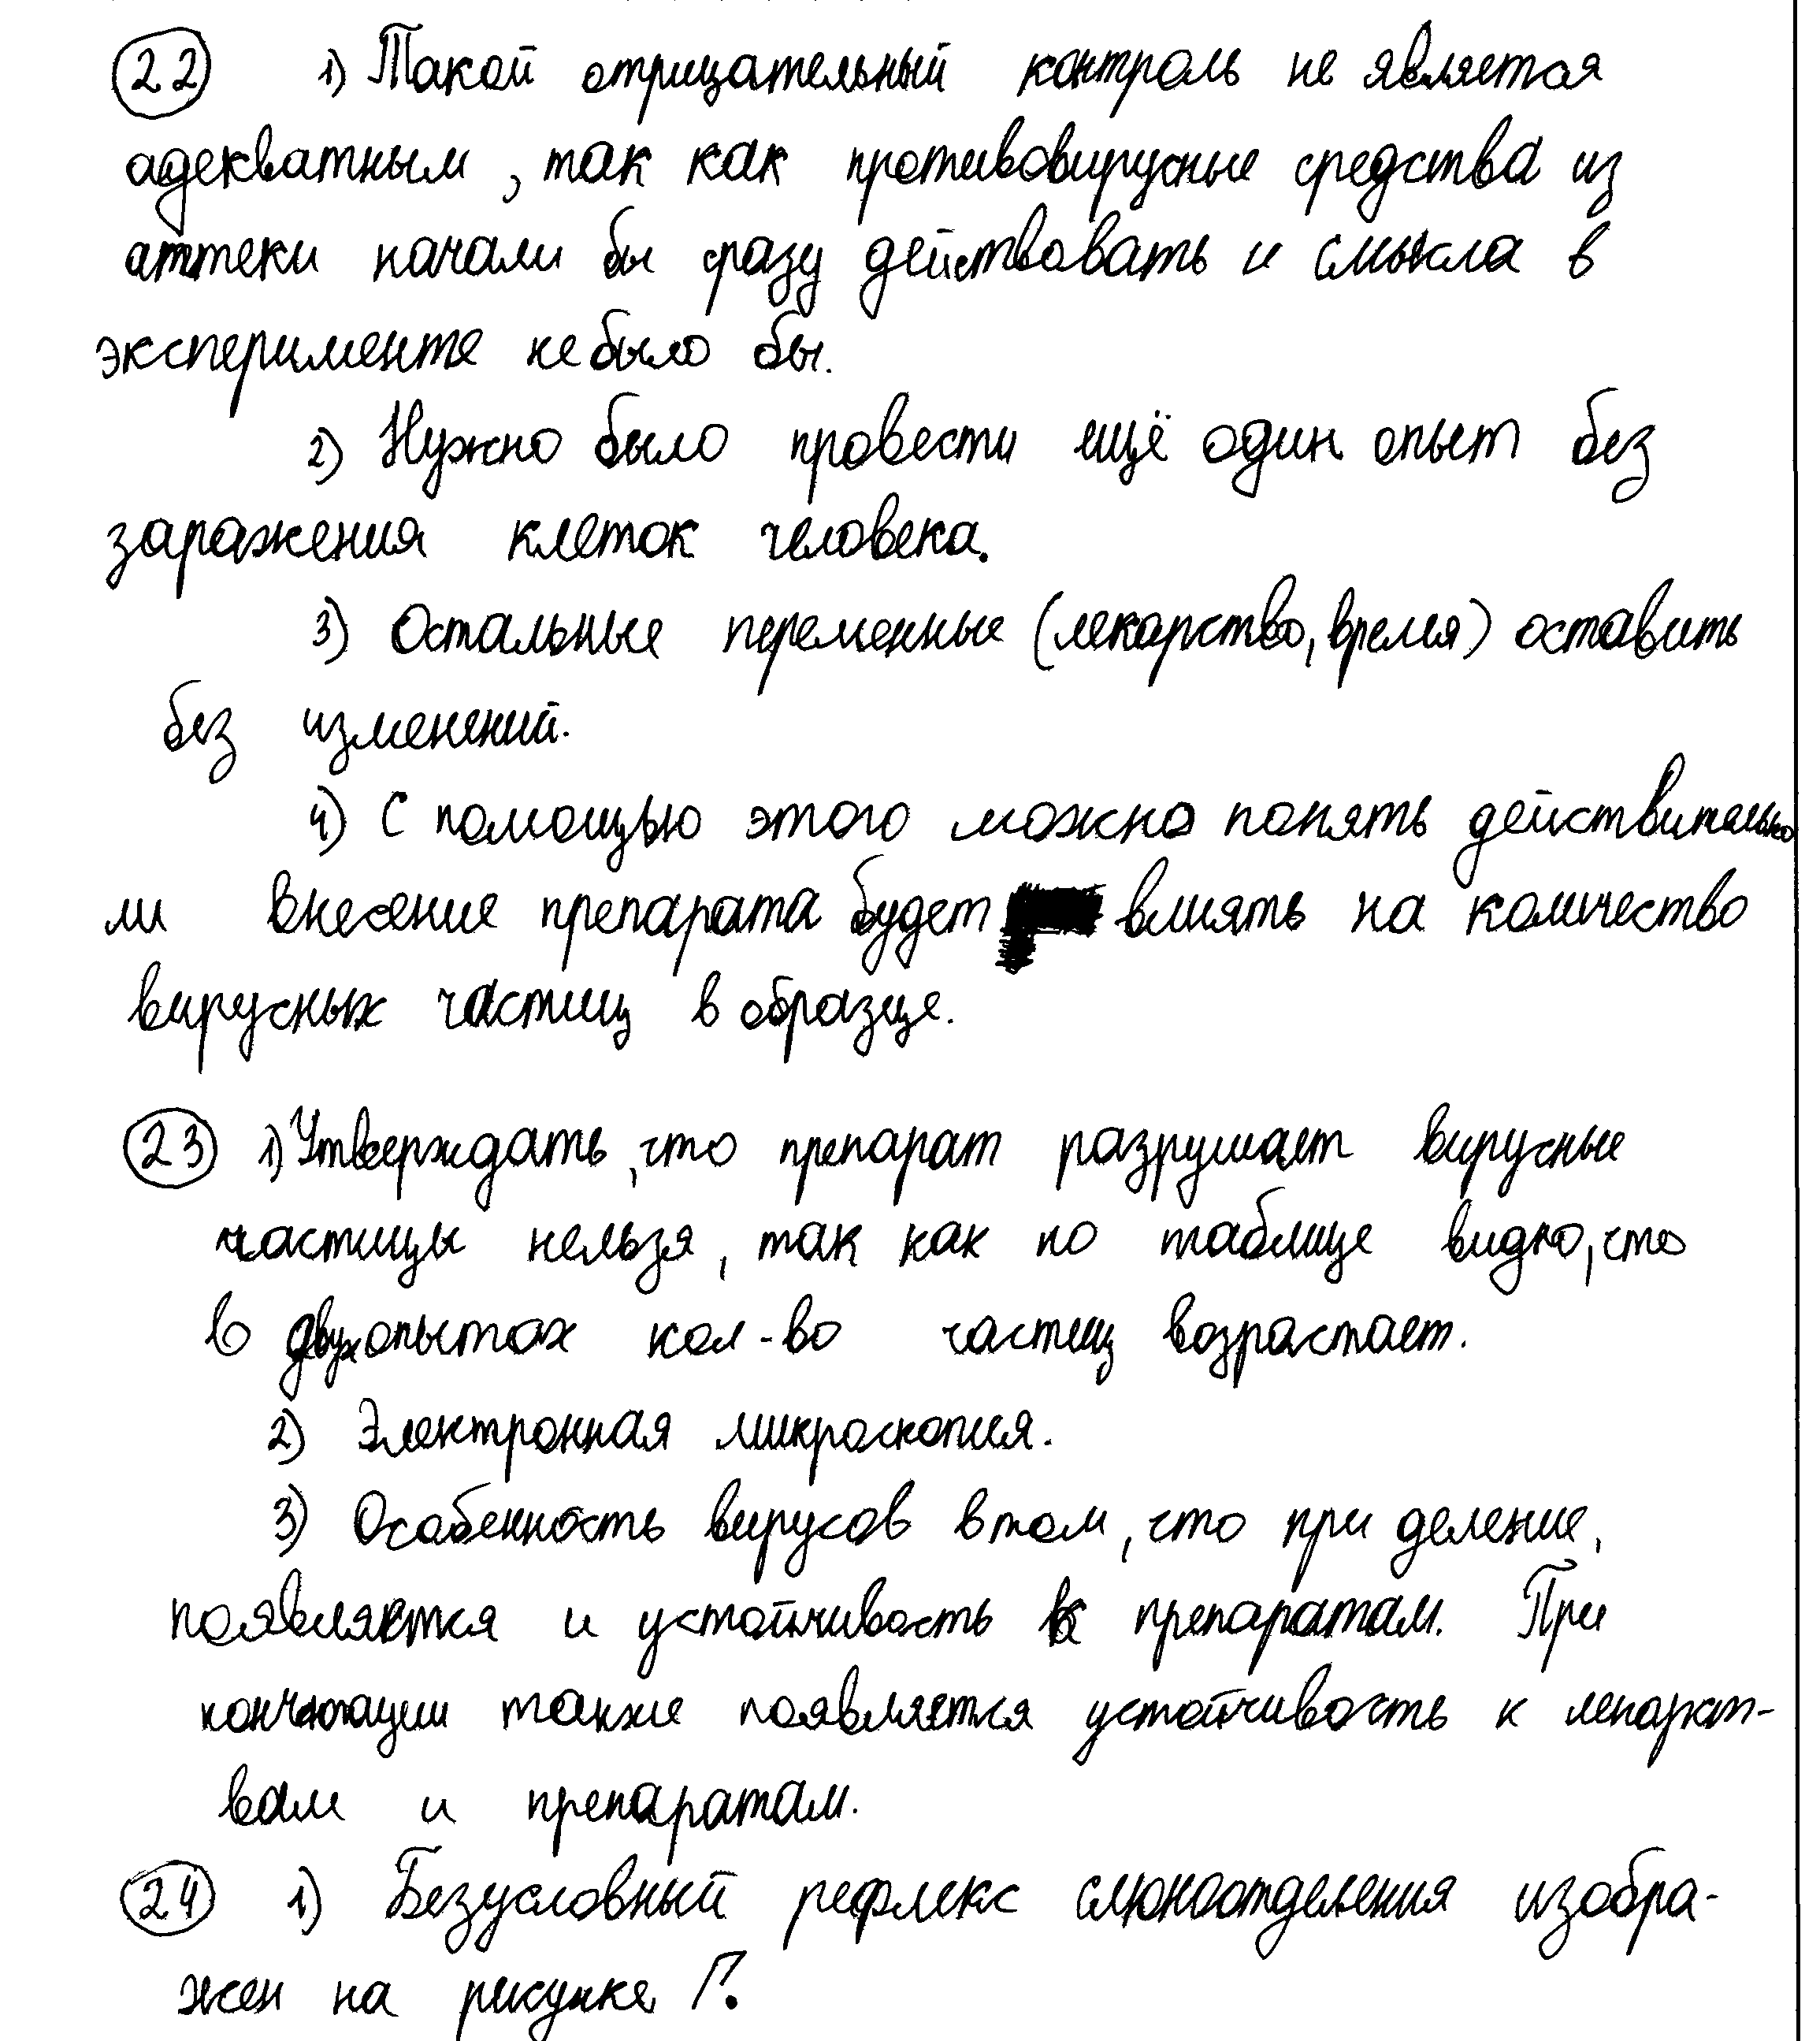 22 1) Такой отрицательный контроль не является
адекватным, так как противовирусные средства из
аптеки начали бы сразу действовать и смысла в
эксперименте не было бы.
2) Нужно было провести ещё один опыт без
заражения клеток человека.
3) Остальные переменные (лекарство, время) оставить
без изменений.
4) С помощью этого можно понять действительно
ли внесение препарата будет влиять на количество
вирусных частиц в образце.
23 1) Утверждать, что препарат разрушает вирусные
частицы нельзя, так как по таблице видно, что
в двух опытах кол-во частиц возрастает.
2) Электронная микроскопия.
3) Особенность вирусов в том, что при деление,
появляется и устойчивость к препаратам. При
конъюгации также появляется устойчивость к лекарст-
вам и препаратам.
24 1) Безусловный рефлекс слюноотделения изобра-
жен на рисунке Г.